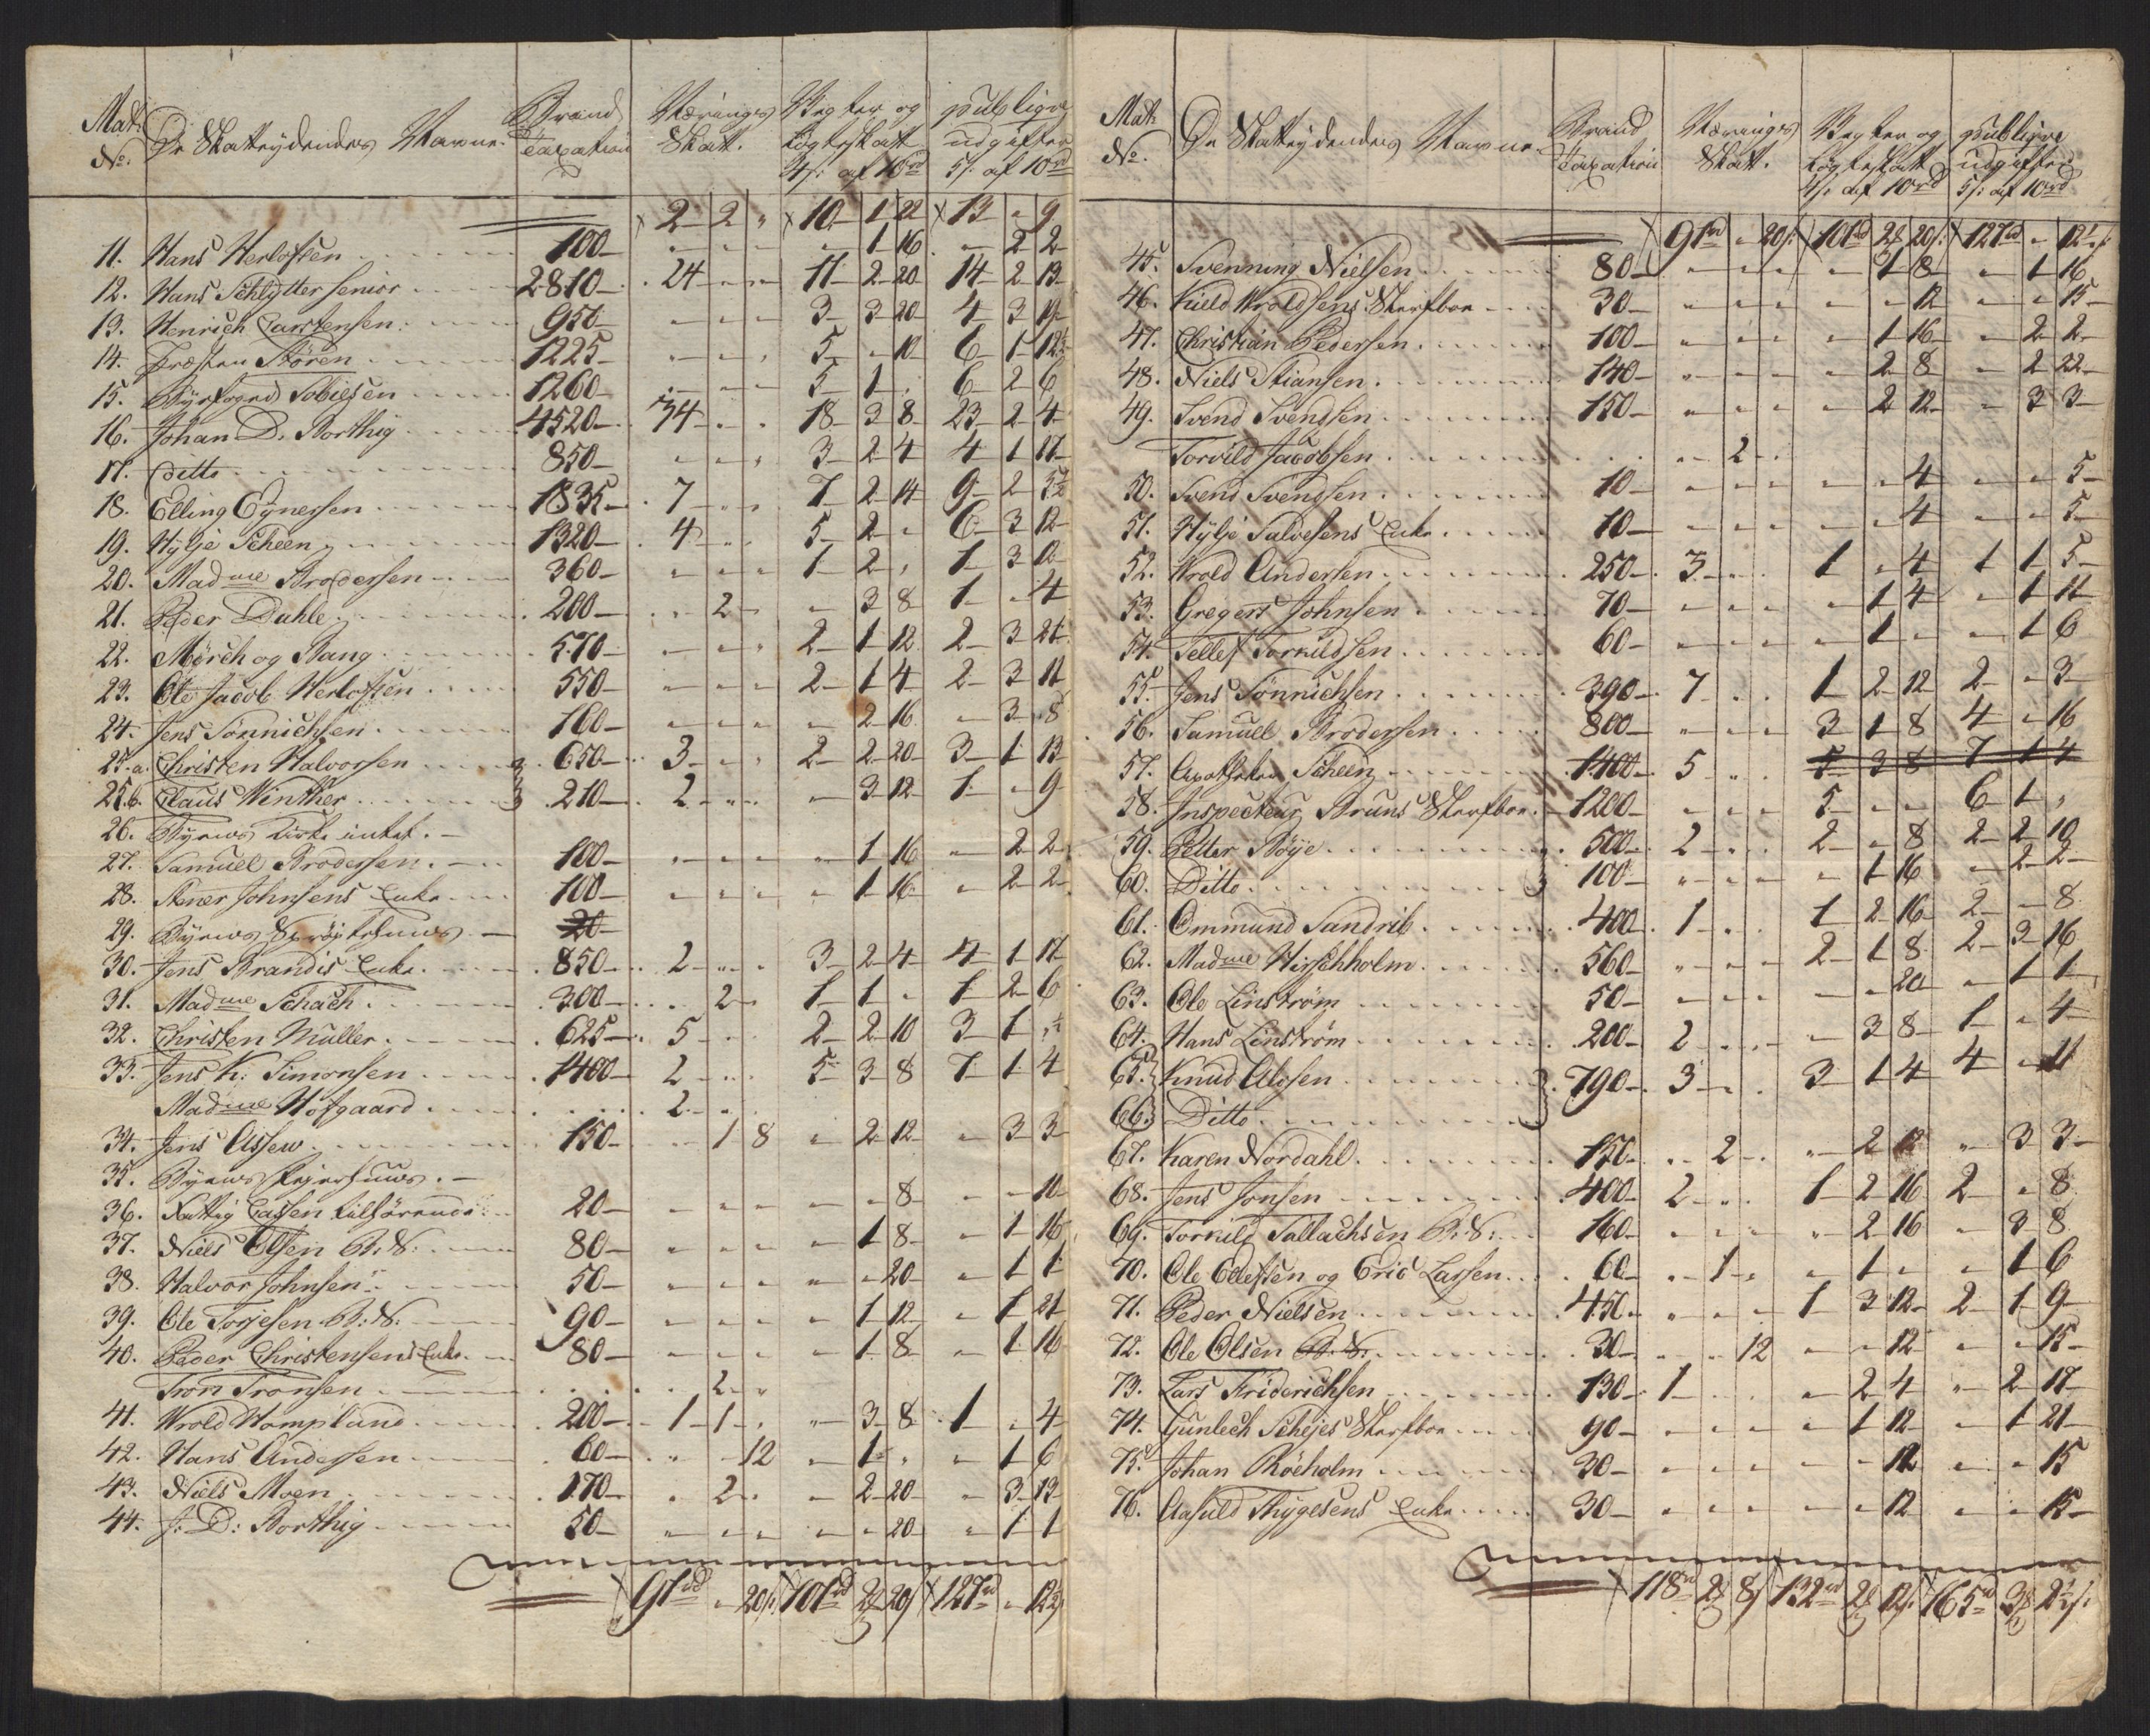 Mat: No. De Skatteydendes Navne. Brand Taxation Nærings Skatt. Vegter og Løgteskatt 4/: af 10rd publique udgifter 5/: af 10rd
2 2 " 10 1 22 13 " 9
11. Hans Herlofsen 100 " " " " 1 16 " 2 2
12. Hans Schlytter senior 2810 24 " " 11 2 20 14 2 13
13. Henrich Carstensen 950 " " " 3 3 20 4 3 19
14. Præsten Stören 1225 " " " 5 " 10 6 1 12½
15. Byefoged Tobiesen 1260 " " " 5 1 " 6 2 6
16. Johan D. Borthig 4520 74 " " 18 3 8 23 2 4
17. Ditto 850 " " " 3 2 4 4 1 17
18. Elling Eynersen 1835 7 " " 7 2 14 9 2 5½
19. Hylje Scheen 1320 4 " " 5 2 " 6 3 12
20. Madme Brodersen 360 " " " 1 2 " 1 3 12
21. Peder Dahle 200 " 2 " " 3 8 1 " 4
22. Mörch og Bang 570 " " " 2 1 12 2 3 21
23. Ole Jacob Herlofsen 550 " " " 2 1 4 2 3 11
24. Jens Sönnichsen 160 " " " " 2 16 " 3 8
25.a. Christen Halvorsen 650 3 " " 2 2 20 3 1 13
25.b. Claus Winther 210 2 " " " 3 12 1 " 9
26. Byens Kirke intet.
27. Samuel Brodersen 100 " " " " 1 16 " 2 2
28. Stener Johnsens Enke 100 " " " " 1 16 " 2 2
29. Byens Spröytehuus 20
30. Jens Brandis Enke 850 2 " " 3 2 4 4 1 17
31. Madme Schach 300 " 2 " 1 1 " 1 2 6
32. Christen Müller 625 5 " " 2 2 10 3 1 "½
33. Jens K: Simonsen 1400 2 " " 5 3 8 7 1 4
Madme Hofgaard 2 "
34. Jens Assew 150 " 1 8 " 2 12 " 3 3
35. Byens
36. Cassen tilhörende 20 " " " " " 8 " " 10
37. Niels Olsen B: N: 80 " " " " 1 8 " 1 16
38. Halvor Johnsen 50 " " " " " 20 " 1 1
39. Ole Torjesen B: N: 90 " " " " 1 12 " 1 21
40. Peder Christensens Enke 80 " " " " 1 8 " 1 16
Tron Tronsen 2 "
41. Wrold Hompland 200 1 1 " " 3 8 1 " 4
42. Hans Andersen 60 " " 12 " 1 " " 1 6
43. Niels Moen 170 " 2 " " 2 20 " 3 13
44. J: D: Borthig 50 " " " " " 20 " 1 1
91rd " 20/: 101rd 2 20/ 127rd " 12½/
Mat: No. De Skatteydendes Navne Brand Taxation Nærings Skatt. Vegter og Løgteskatt 4/: af 10rd publique udgifter 5/: af 10rd
91rd " 20/: 101rd 2 20/: 127rd " 12½/:
45. Svenning Nielsen 80 " " " " 1 8 " 1 16
46. Kield Wroldsens Sterfboe 30 " " " " " 12 " " 15
47. Christian Pedersen 100 " " " " 1 16 " 2 2
48. Niels Stiansen 140 " " " " 2 8 " 2 22
49. Svend Svendsen 150 " " " " 2 12 " 3 3
Torvild Jacobsen " 2 "
50. Svend Svendsen 10 " " " " " 4 " " 5
51. Hylje Salvesens Enke 10 " " " " " 4 " " 5
52. Wrold Andersen 250 3 " " 1 " 4 1 1 5
53. Gregers Johnsen 70 " " " " 1 4 " 1 11
54. Tellef Torkildsen 60 " " " " 1 " " 1 6
55. Jens Sönnichsen 390 7 " " 1 2 12 2 " 3
56. Samuel Brodersen 800 " " " 3 1 8 4 " 16
57. Apotheker Scheen 1400 5 " " 5 3 8 7 1 4
58. Inspecteur Bruns Sterfboe 1200 " " " 5 " " 6 1 "
59. Petter Böye 500 2 " " 2 " 8 2 2 10
60. Ditto 100 " " " " 1 16 " 2 2
61. Ommund Sandrib 400 1 " " 1 2 16 2 " 8
62. Madme Hirschholm 560 " " " 2 1 8 2 3 16
63. Ole Linström 50 " " " " " 20 " 1 1
64. Hans Linström 200 2 " " " 3 8 1 " 4
65. Knud Alvsen 790 3 " " 3 1 4 4 " 11
66. Ditto
67. Karen Nordahl 150 " 2 " " 2 12 " 3 3
68. Jens Jonsen 400 2 " " 1 2 16 2 " 8
69. Torkild Tallachsen B: N: 160 " " " " 2 16 " 3 8
70. Ole Ellefsen og Eric Larsen 60 " 1 " " 1 " " 1 6
71. Peder Nielsen 450 " " " 1 3 12 2 1 9
72. Ole Olsen B: N: 30 " " 12 " " 12 " " 15
73. Lars Friderichsen 130 1 " " " 2 4 " 2 17
74. Gunlech Schejes Sterfboe 90 " " " " 1 12 " 1 21
75. Johan Röeholm 30 " " " " " 12 " " 15
76. Aasuld Thygesens Enke 30 " " " " " 12 " " 15
118rd 2 8/ 132rd 2 12/: 165rd 3 2½/: